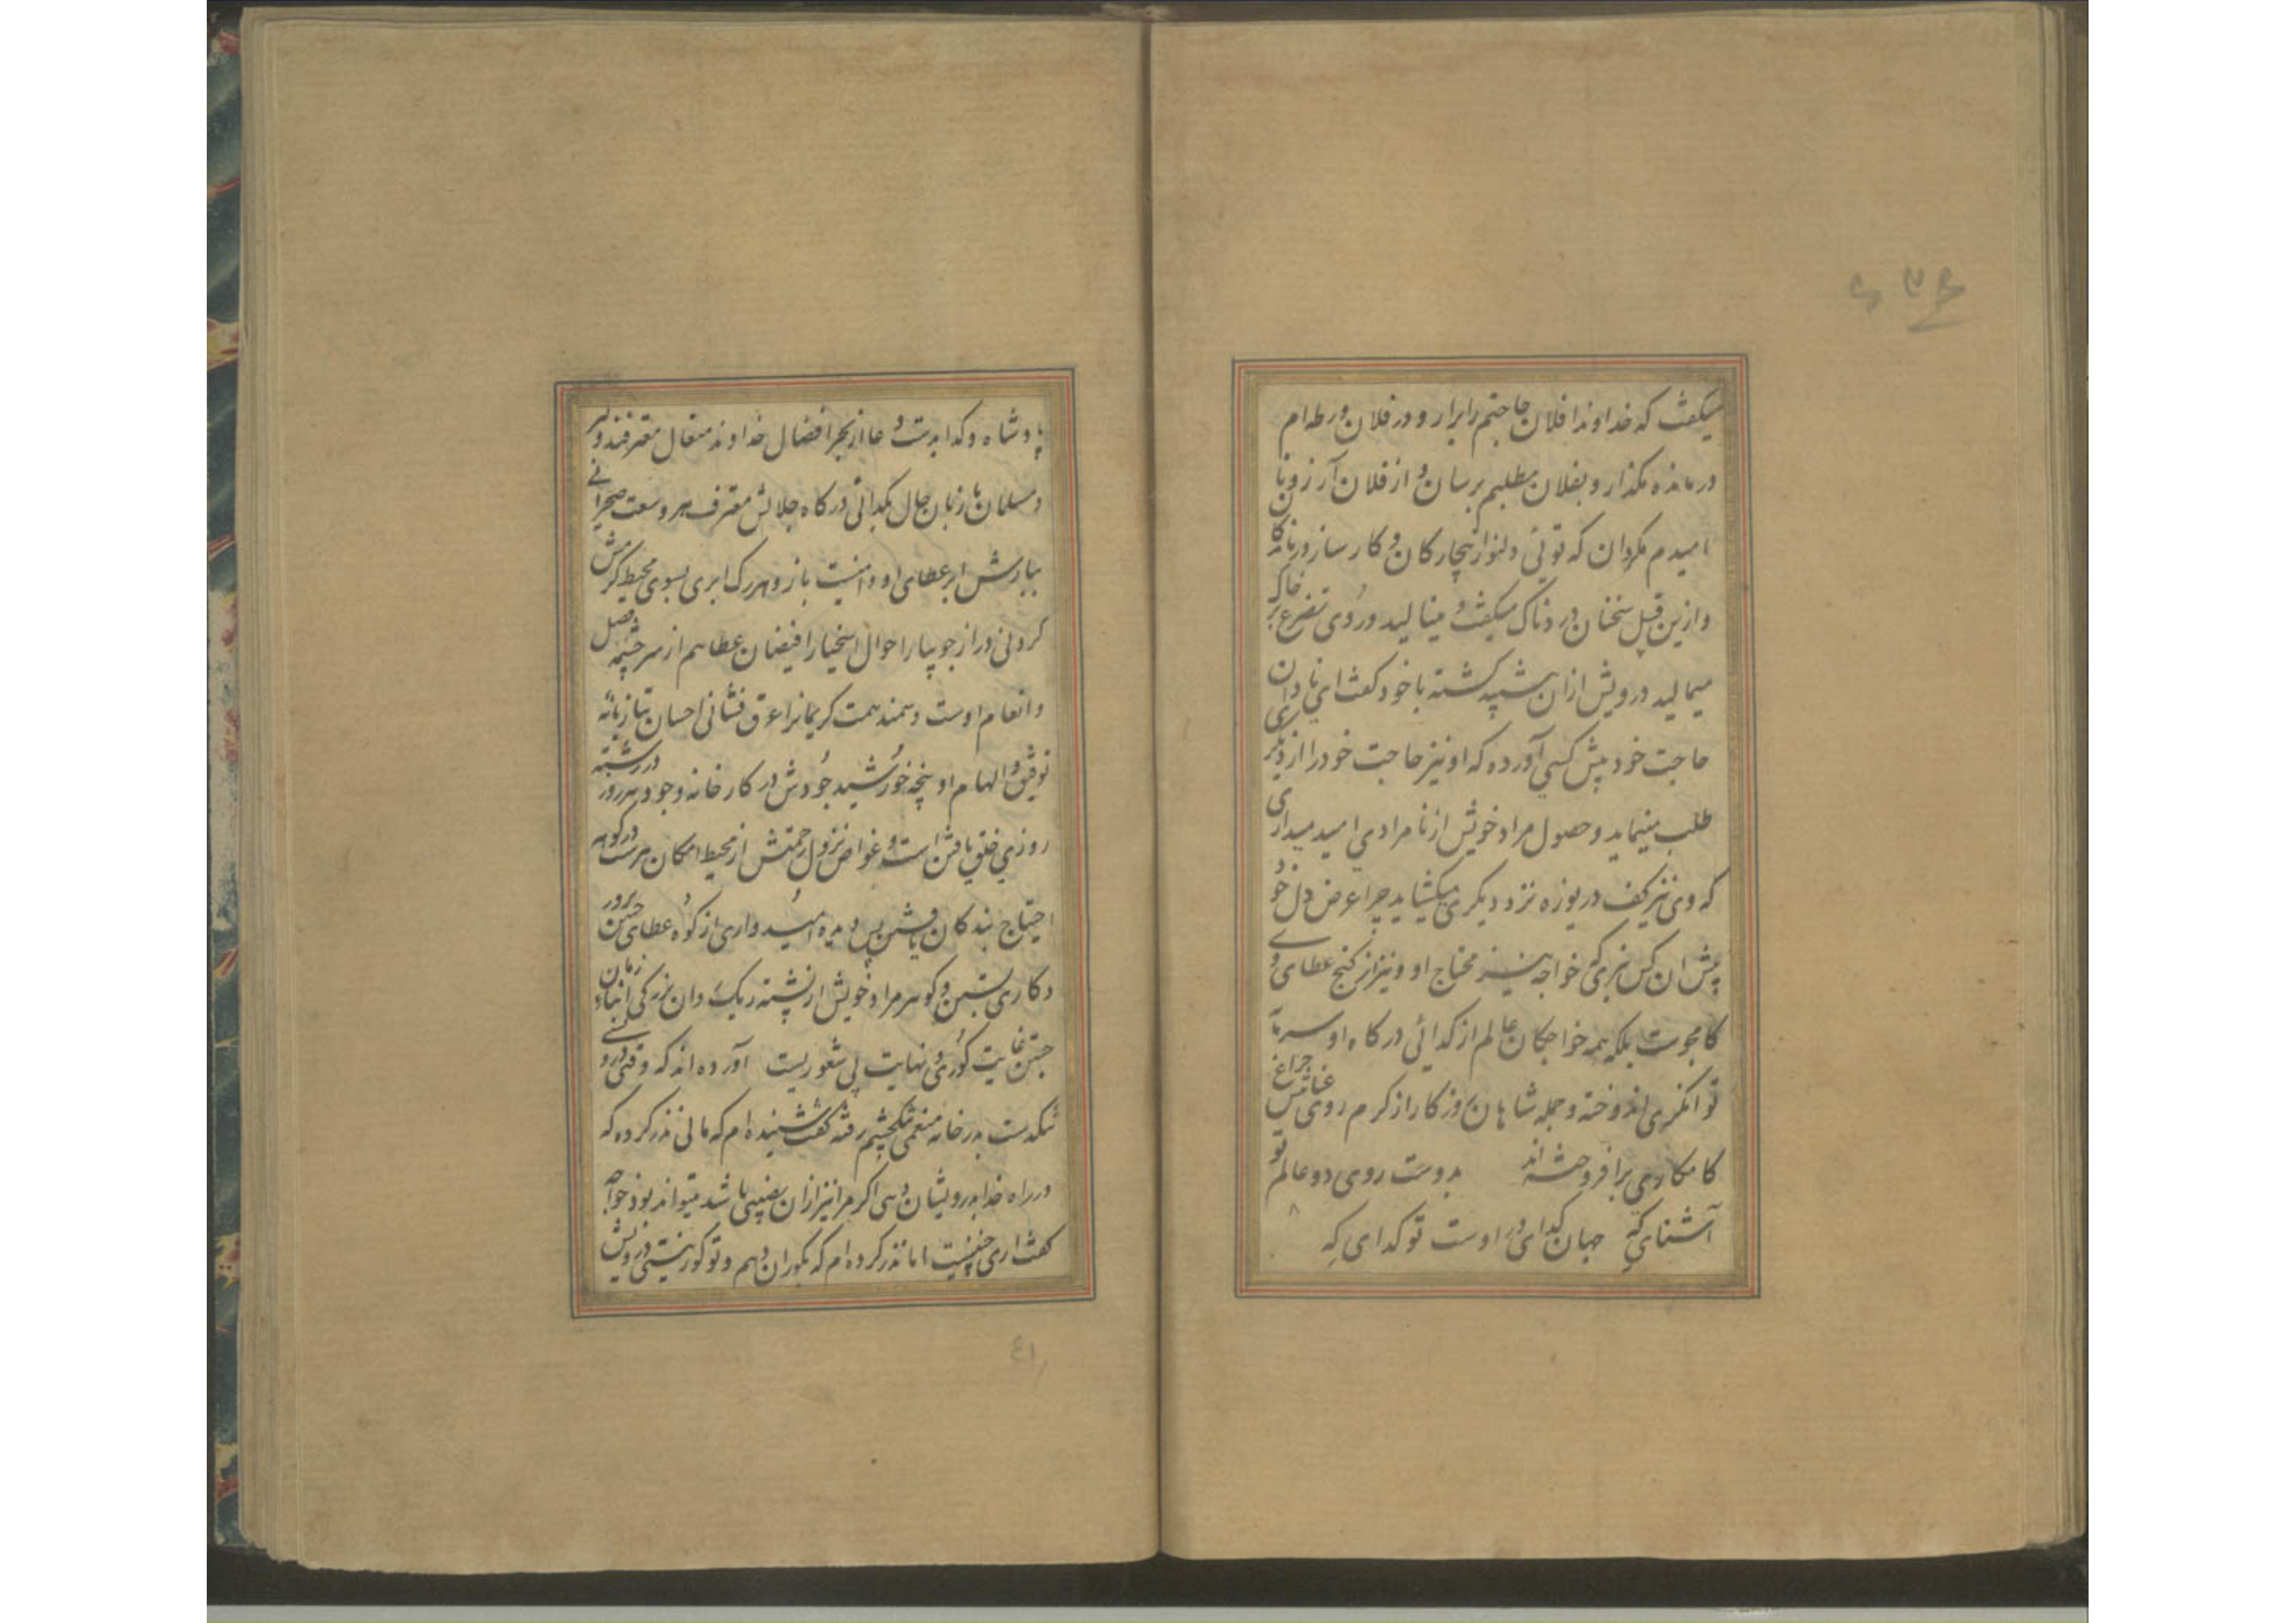 میکفت که خداوندا فلان حاجتم را برار و در فلان ورطه ام
درمانده مکذار و بفلان مطلبم برسان و از فلان آرزو نا
امیدم مکردان که توئی دلنواز بیچارکان و کارساز
وازین قبیل سخنان دردناک میکفت و مینالید و روی تضرع بر خاک
میمالید درویش ازان کشته با خود کفت ای نادان
حاجت خود پیش کسی آورده که او نیز حاجت خود را از دیکری
طلب مینماید و حصول مراد خویش از نامرادی امید میداری
که وی نیز کف دریوزه نزد دیکری میکشاید چرا عرض دل خود
پیش ان کس نبری که خواجه نیز محتاج او و نیز از کنج عطای وی
کامجوست بلکه همه خواجکان عالم از کدائی درکاه او سرمایه
توانکری اندوخته و جمله شاهان روزکار از کرم روی چراغ
کامکاری برافروخته اند بدوست روی دو عالم تو
آشنای که جهان کدای در اوست تو کدای که
پادشاه و کدا بدست دعا از بحر افضال خداوند متعال مغترفند و کبر
و مسلمان با زبان حال بکدائی درکاه جلالش معترف هر وسعت صحرائی
ببارش ابر عطای او دامنیست باز و هر رک ابری بسوی محیط کرمش
کردنی دراز جویبار احوال اسخیا را فیضان عطا هم از سرچشمه فضل
و انعام اوست و سمند همت کریمانرا عرق فشانی احسان بتازیانه
توفیق و الهام او پنجه خورشید جودش در کارخانه وجود هر روز در رشته
روزی خلق یافتن است و غواص نزول رحمتش از محیط امکان در کوهر
احتیاج بندکان یافتن پس دیده امیدواری از کوه عطای چنین
و کاری بستن و کوهر مراد خویش از پشته ریک دان بزرکی ابناء زمان
جستن غایت کوری و نهایت بی شعوریست آورده اند که وقتی درویشی
تنکدست بدر خانه منعمی رفته کفت شنیده ام که مالی نذر کرده که
در راه خدا بدرویشان دهی اکر مرا نیز ازان نصیبی باشد میتواند بود خواجه
کفت اری چنینست اما نذر کرده ام که بکوران دهم و تو کور نیستی درویش
٤١